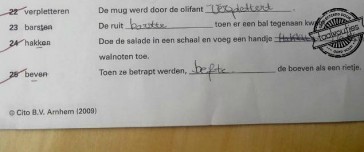 22 verpletteren De mug werd door de olifant verpletterd.
23 barsten De ruit barstte toen er een bal tegenaan kw
24 hakken Doe de salade in een schaal en voeg een handje
walnoten toe.
25 beven Toen ze betrapt werden, befte de boeven als een rietje.
© Cito B.V. Arnhem (2009)
taalvoutjes